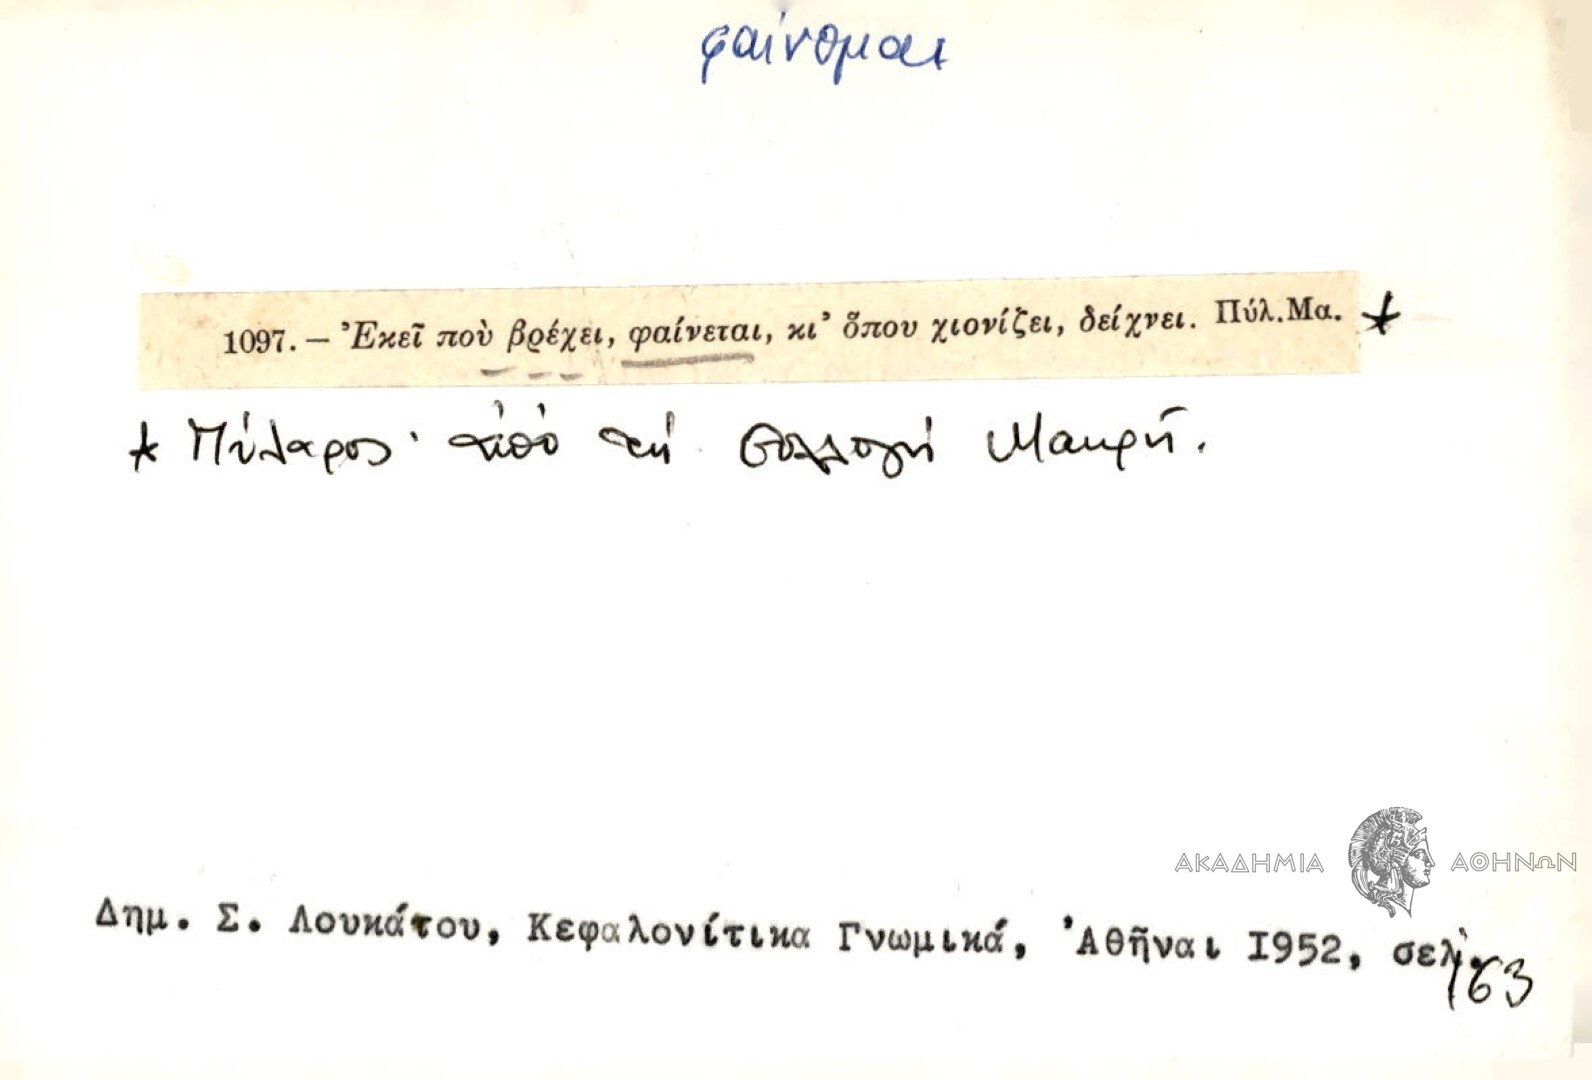 φαίνομαι
1097. — Ἐκεῖ ποὺ βρέχει, φαίνεται, κι' ὅπου χιονίζει, δείχνει. Πύλ.Μα. *
* Πύλαρος· ἀπὸ τή συλλογή Μακρῆ.
ΑΚΑΔΗΜΙΑ ΑΘΗΝΩΝ
Δημ. Σ. Λουκάτου, Κεφαλονίτικα Γνωμικά, Ἀθῆναι 1952, σελ. 163